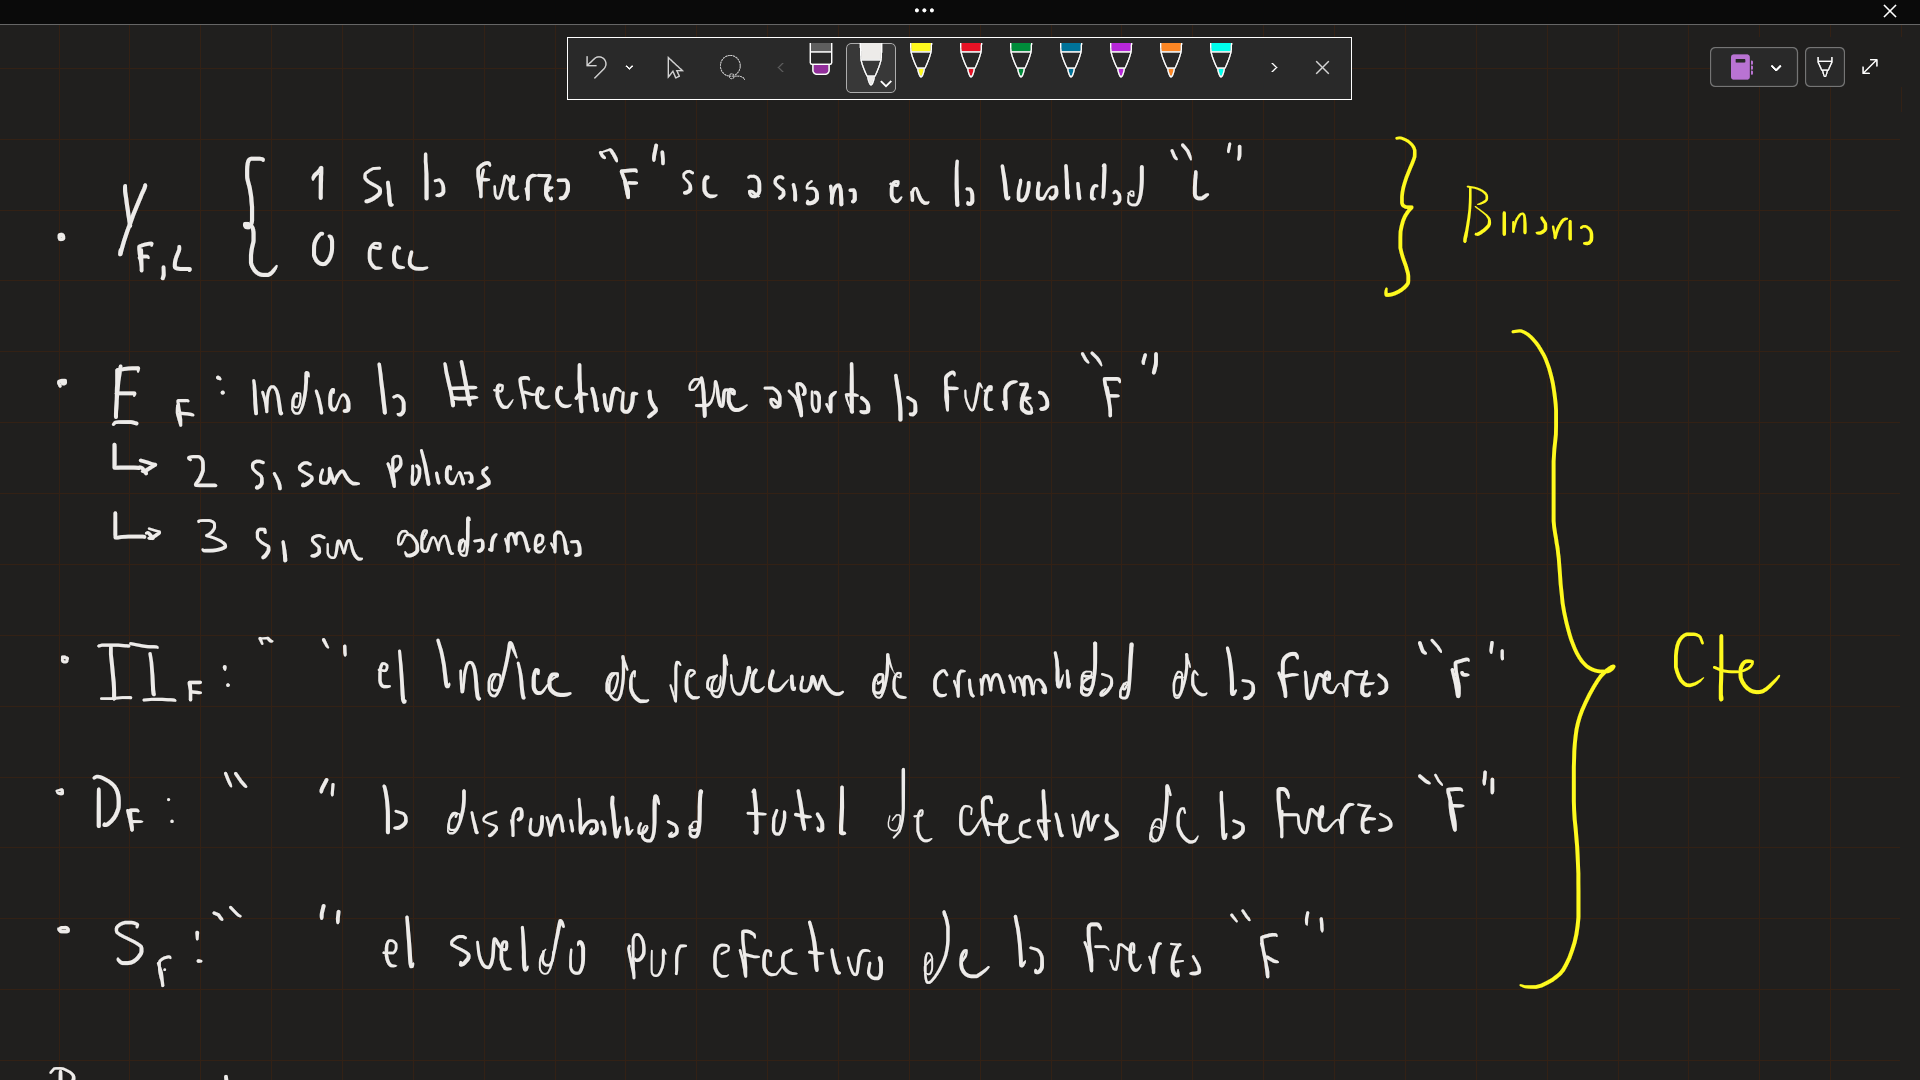 Y F,L { 1 Si la fuerza "F" se asigna en la localidad "L"
0 ecc
} Binaria
E F : Indica la # efectivos que aporta la fuerza "F"
↳ 2 si son policias
↳ 3 si son gendarmeria
II F : " " el Indice de reduccion de criminalidad de la fuerza "F"
} Cte
D F : " " la disponibilidad total de efectivos de la fuerza "F"
S F : " " el sueldo por efectivo de la fuerza "F"